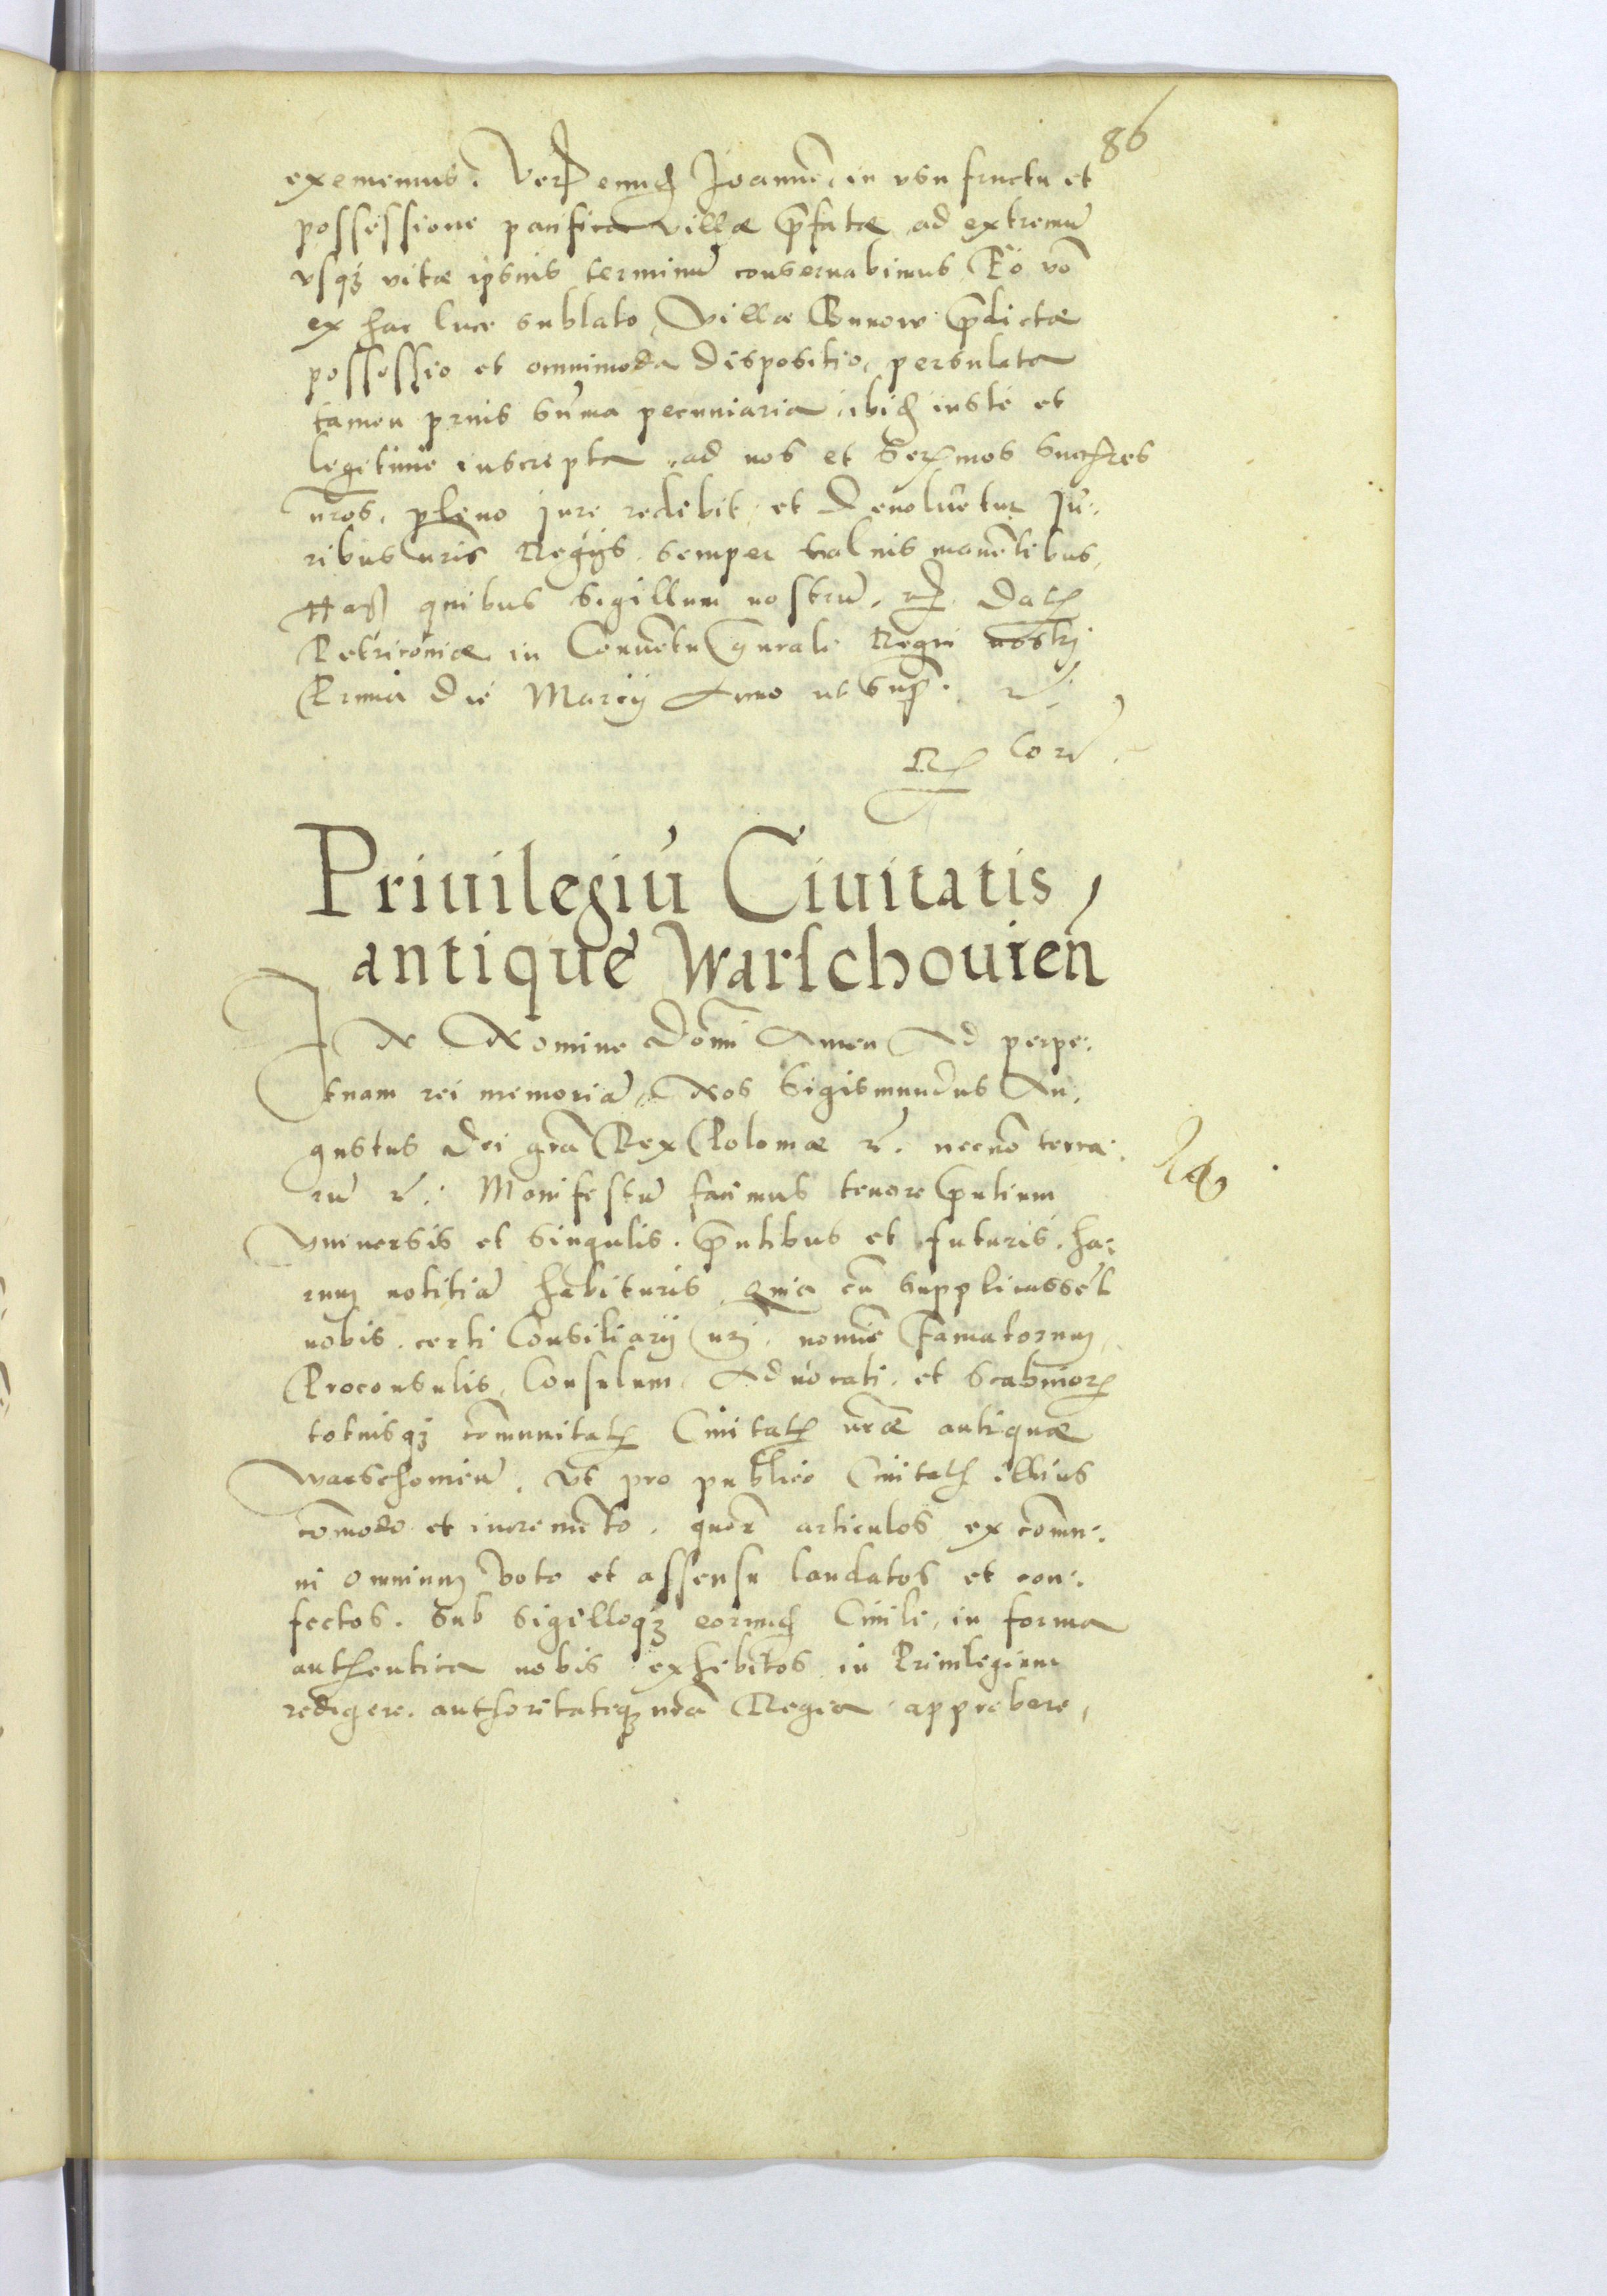 86
exememus. Verū eundē Joannē, in usu fructu et
possessione pacifica villæ p̄fatæ ad extremū
vsq₃ vitæ ipsius terminū conseruabimus Eo v̄o
ex hac luce sublato, Villæ Bunow p̄dictæ
possessio et omnimoda dispositio, persoluta
tamen prius sūma pecuniaria, ibid iuste et
legitime inscripta, ad nos et Serm̄os Succ̄res
nr̄os, pleno jure redibit et deuoluetur Ju:
ribus nr̄is Regijs semper saluis manētibus,
Harū quibus sigillum nostrū, rc̄. Datū
Petricouiæ in Conuētu gn̄rali Regni nostrj
Prima die Marcij Anno ut supr̄.
R Cor̄
Priuilegiū Ciuitatis
antique Warschouień
IN Nomine Domī Amen Ad perpe:
tuam rei memoriā, Nos Sigismundus Au:
gustus Dei gr̄a Rex Poloniæ rc̄. necnō terra:
rū rc̄: Manifestū facimus tenore p̄ntium
vniuersis et singulis. p̄ntibus et futuris, ha:
rum notitiā habituris, Quia cū supplicassēt
nobis certi Consiliarij nr̄i, nomie Famatorum
Proconsulis, Consulum, Aduocati, et Scabinorū
totiusq₃ cōmunitatis Ciuitatis nr̄æ antiquæ
Warschouień. Vt pro publico Ciuitatis illius
cōmodo et incremēto, quosdā articulos, ex cōmu:
ni omnium voto et assensu laudatos et con:
fectos. Sub sigilloq₃ eorund Ciuili, in forma
authentica nobis exhibitos in Priuilegium
redigere, authoritateq₃ nr̄a Regia approbare,